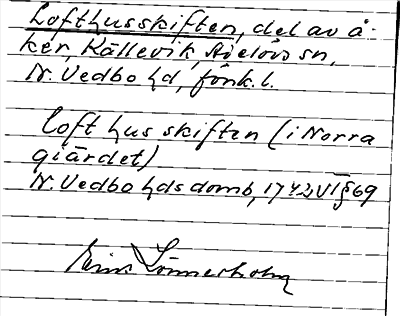 Lofthusskiften, del av å-
ker, Källevik, Askeryds sn,
N. Vedbo hd, Jönk. l.
Loft hus skiften (i Norra
giärdet)
N. Vedbo hds domb, 1742 VI § 69